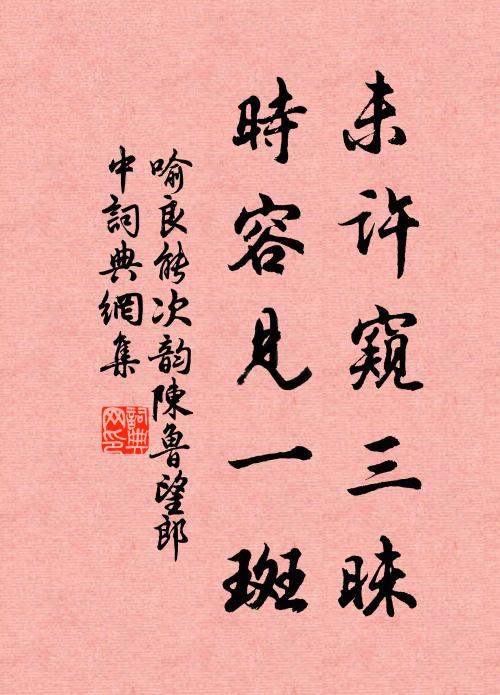 未許窺三昧
時容見一斑
喻良能次韵陳魯望郎
中詞典網集
詞典
网印